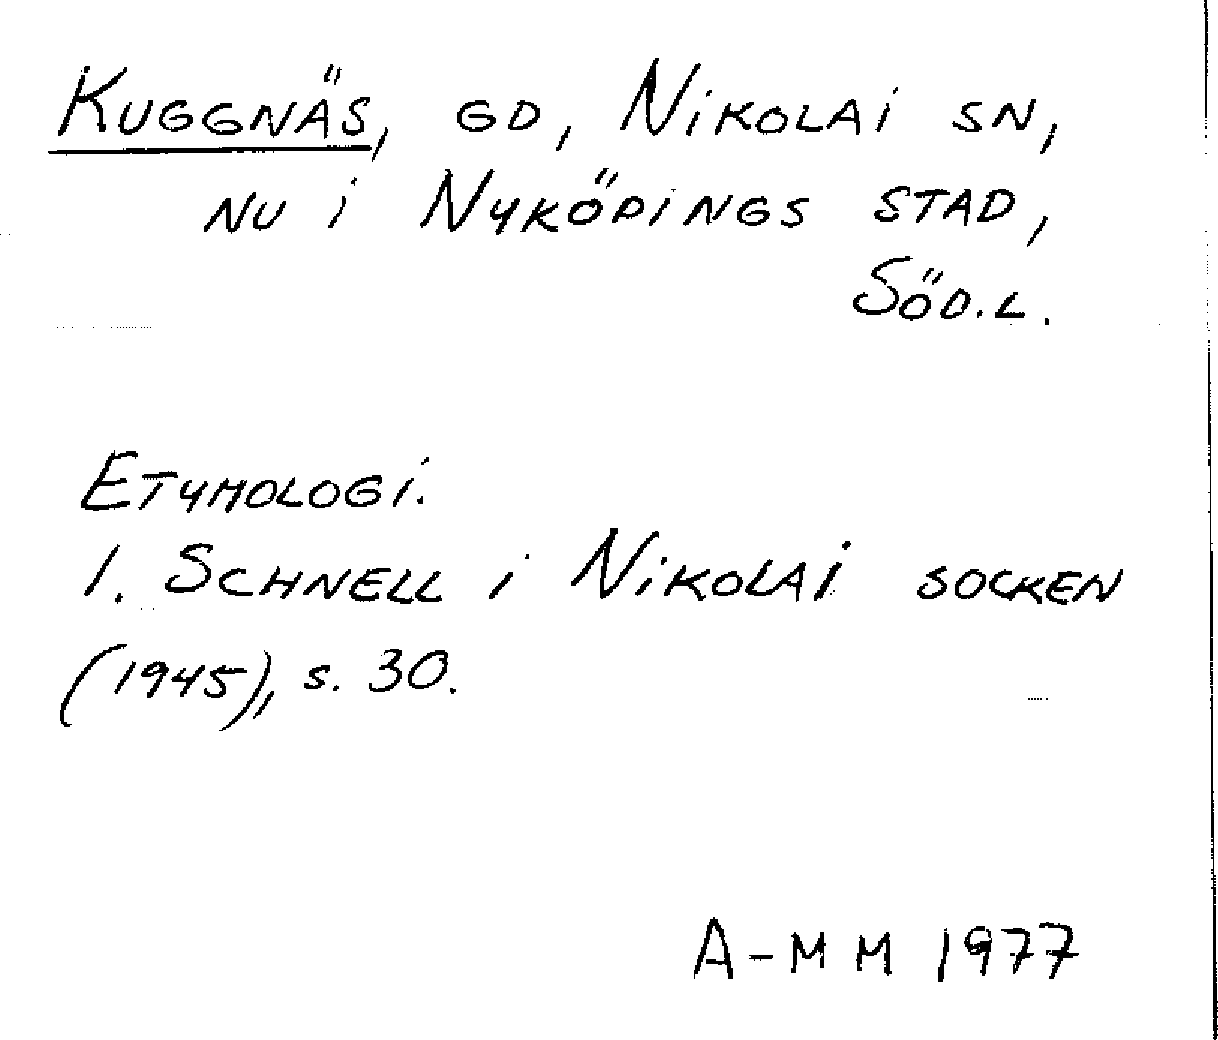 Kuggnäs, gd, Nikolai sn,
nu i Nyköpings stad,
Söd.l.
Etymologi.
I. Schnell i Nikolai socken
(1945), s. 30.
A-M M 1977